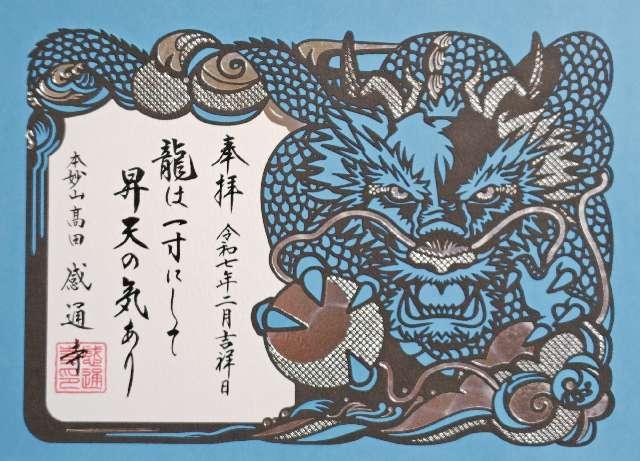 奉拝 令和七年二月吉祥日
龍は一寸にして
昇天の気あり
本妙山高田 感通寺
感通寺印